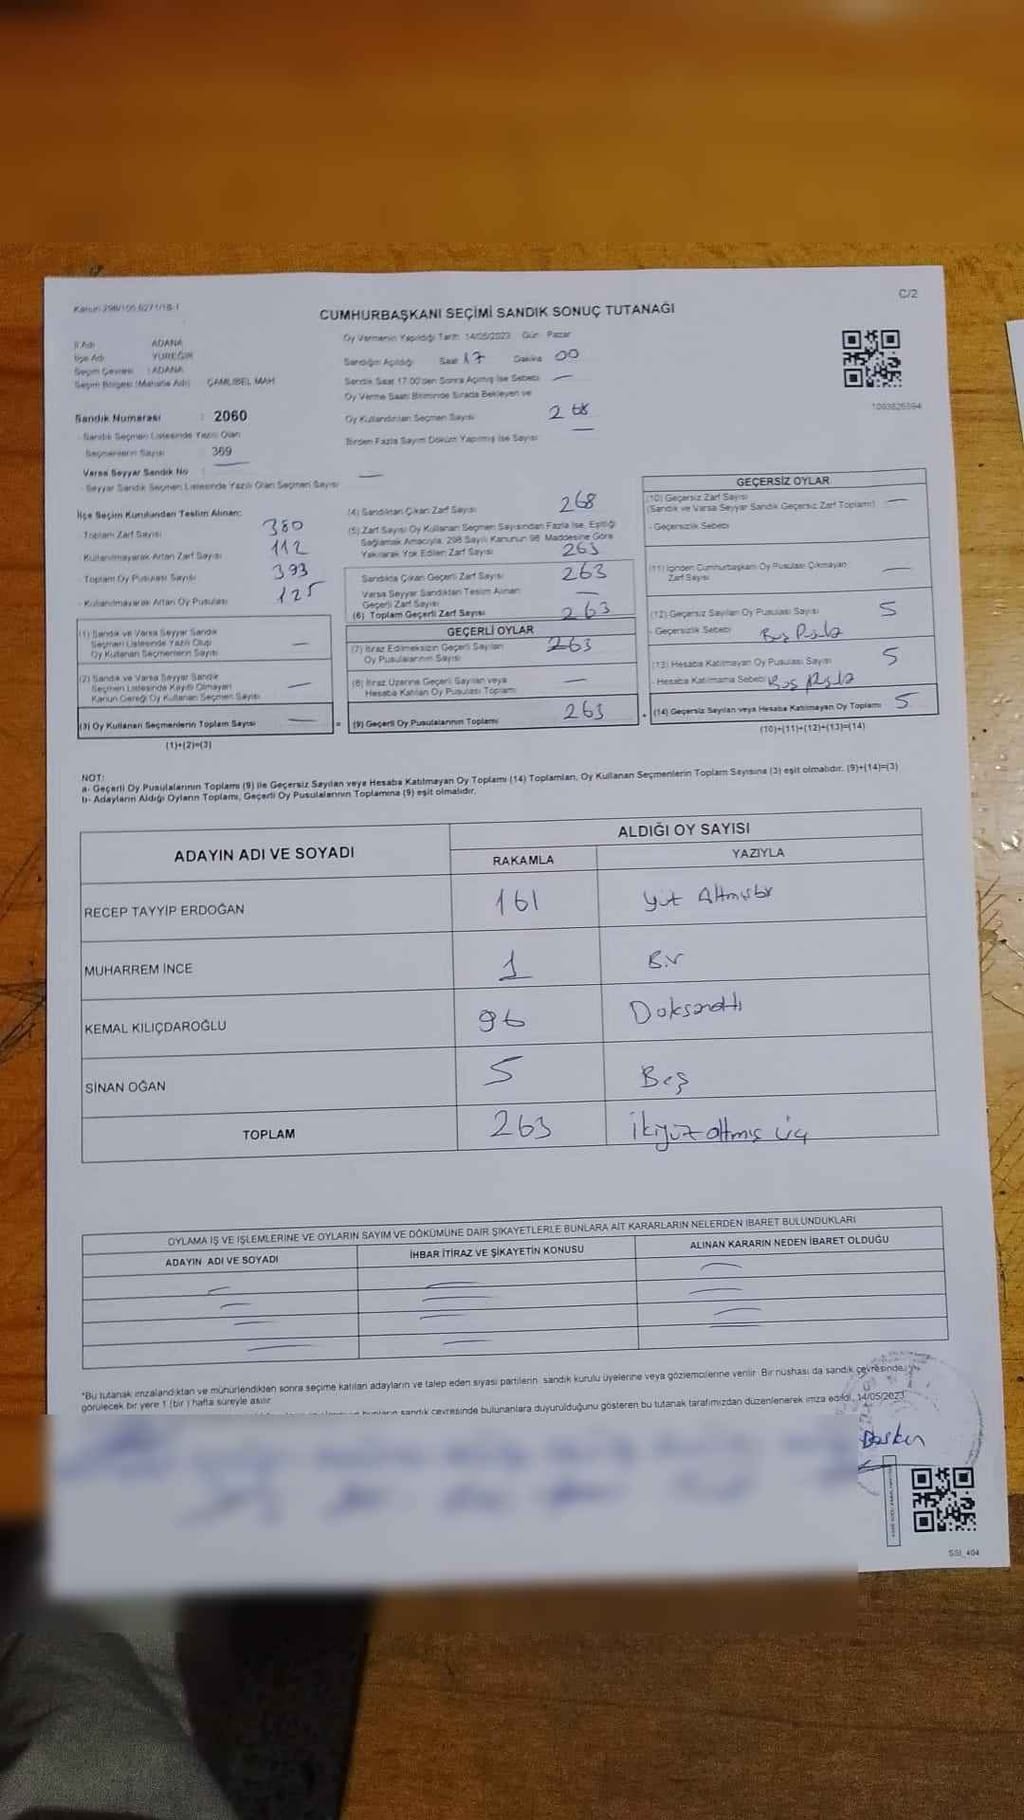 Kanun 298/105 6271/18-1
C/2
CUMHURBAŞKANI SEÇİMİ SANDIK SONUÇ TUTANAĞI
İl Adı : ADANA
İlçe Adı : YÜREĞİR
Seçim Çevresi : ADANA
Seçim Bölgesi (Mahalle Adı) : ÇAMLIBEL MAH.
Sandık Numarası : 2060
- Sandık Seçmen Listesinde Yazılı Olan
Seçmenlerin Sayısı : 369
Varsa Seyyar Sandık No : —
- Seyyar Sandık Seçmen Listesinde Yazılı Olan Seçmen Sayısı —
Oy Vermenin Yapıldığı Tarih: 14/05/2023 Gün: Pazar
Sandığın Açıldığı Saat 17 Dakika 00
Sandık Saat 17.00'den Sonra Açılmış İse Sebebi —
Oy Verme Saati Bitiminde Sırada Bekleyen ve
Oy Kullandırılan Seçmen Sayısı 268
Birden Fazla Sayım Döküm Yapılmış İse Sayısı —
1003826594
İlçe Seçim Kurulundan Teslim Alınan:
Toplam Zarf Sayısı 380
- Kullanılmayarak Artan Zarf Sayısı 112
- Toplam Oy Pusulası Sayısı 393
- Kullanılmayarak Artan Oy Pusulası 125
(1) Sandık ve Varsa Seyyar Sandık
Seçmen Listesinde Yazılı Olup
Oy Kullanan Seçmenlerin Sayısı —
(2) Sandık ve Varsa Seyyar Sandık
Seçmen Listesinde Kayıtlı Olmayan
Kanun Gereği Oy Kullanan Seçmen Sayısı —
(3) Oy Kullanan Seçmenlerin Toplam Sayısı —
(1)+(2)=(3)
(4) Sandıktan Çıkan Zarf Sayısı 268
(5) Zarf Sayısı Oy Kullanan Seçmen Sayısından Fazla İse, Eşitliği
Sağlamak Amacıyla, 298 Sayılı Kanunun 98. Maddesine Göre
Yakılarak Yok Edilen Zarf Sayısı 263
Sandıkta Çıkan Geçerli Zarf Sayısı 263
Varsa Seyyar Sandıktan Teslim Alınan
Geçerli Zarf Sayısı —
(6) Toplam Geçerli Zarf Sayısı 263
GEÇERLİ OYLAR
(7) İtiraz Edilmeksizin Geçerli Sayılan
Oy Pusulalarının Sayısı 263
(8) İtiraz Üzerine Geçerli Sayılan veya
Hesaba Katılan Oy Pusulası Toplamı —
= (9) Geçerli Oy Pusulalarının Toplamı 263
GEÇERSİZ OYLAR
(10) Geçersiz Zarf Sayısı
(Sandık ve Varsa Seyyar Sandık Geçersiz Zarf Toplamı) —
- Geçersizlik Sebebi
(11) İçinden Cumhurbaşkanı Oy Pusulası Çıkmayan
Zarf Sayısı —
(12) Geçersiz Sayılan Oy Pusulası Sayısı 5
- Geçersizlik Sebebi Boş Pusula
(13) Hesaba Katılmayan Oy Pusulası Sayısı 5
- Hesaba Katılmama Sebebi Boş Pusula
+ (14) Geçersiz Sayılan veya Hesaba Katılmayan Oy Toplamı 5
(10)+(11)+(12)+(13)=(14)
NOT:
a- Geçerli Oy Pusulalarının Toplamı (9) ile Geçersiz Sayılan veya Hesaba Katılmayan Oy Toplamı (14) Toplamları, Oy Kullanan Seçmenlerin Toplam Sayısına (3) eşit olmalıdır. (9)+(14)=(3)
b- Adayların Aldığı Oyların Toplamı, Geçerli Oy Pusulalarının Toplamına (9) eşit olmalıdır.
ADAYIN ADI VE SOYADI
ALDIĞI OY SAYISI
RAKAMLA YAZIYLA
RECEP TAYYİP ERDOĞAN 161 Yüz Altmışbir
MUHARREM İNCE 1 Bir
KEMAL KILIÇDAROĞLU 96 Doksanaltı
SİNAN OĞAN 5 Beş
TOPLAM 263 İkiyüz altmış üç
OYLAMA İŞ VE İŞLEMLERİNE VE OYLARIN SAYIM VE DÖKÜMÜNE DAİR ŞİKAYETLERLE BUNLARA AİT KARARLARIN NELERDEN İBARET BULUNDUKLARI
ADAYIN ADI VE SOYADI İHBAR İTİRAZ VE ŞİKAYETİN KONUSU ALINAN KARARIN NEDEN İBARET OLDUĞU
*Bu tutanak imzalandıktan ve mühürlendikten sonra seçime katılan adayların ve talep eden siyasi partilerin sandık kurulu üyelerine veya gözlemcilerine verilir. Bir nüshası da sandık çevresinde
görülecek bir yere 1 (bir) hafta süreyle asılır.
bunların sandık çevresinde bulunanlara duyurulduğunu gösteren bu tutanak tarafımızdan düzenlenerek imza edildi. 14/05/2023
Başkan
SSI_404